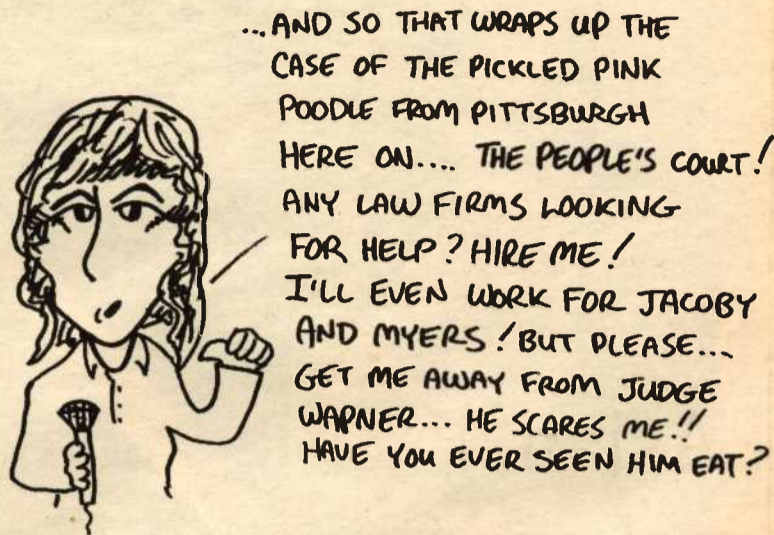 ...AND SO THAT WRAPS UP THE
CASE OF THE PICKLED PINK
POODLE FROM PITTSBURGH
HERE ON.... THE PEOPLE'S COURT!
ANY LAW FIRMS LOOKING
FOR HELP? HIRE ME!
I'LL EVEN WORK FOR JACOBY
AND MYERS! BUT PLEASE...
GET ME AWAY FROM JUDGE
WAPNER... HE SCARES ME!!
HAVE YOU EVER SEEN HIM EAT?